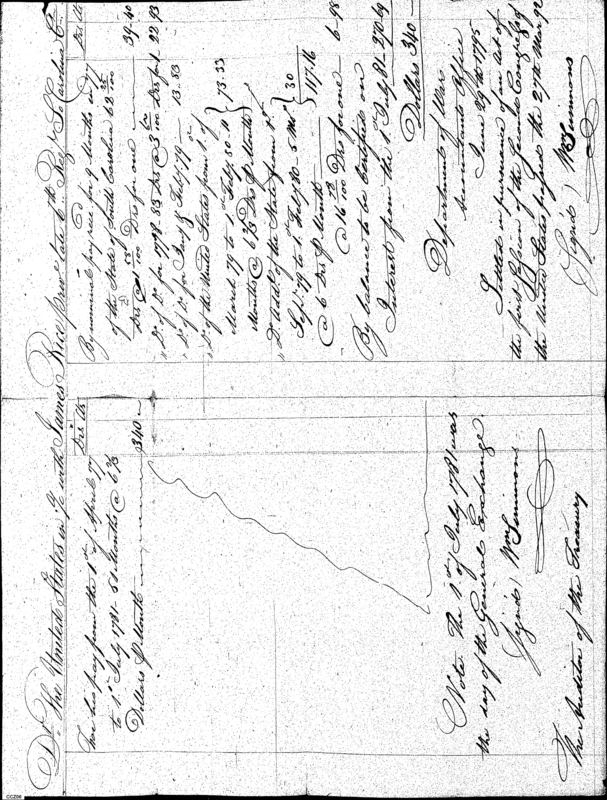 Dr. The United States in a/c with James Rice priv. late 6th Regt. So Carolina Cr.
Drs Cts
For his pay from the 1st of April 77
to 1st July 1781 51 Months @ 6 2/3
Dollars P Month 340
Note. The 1st of July 1781 was
the day of the General Exchange
Signed) Wm Simmons
The Auditor of the Treasury
Drs Cts
By nominal pay recd for 9 Months in 777
of the State of South Carolina 68 35/100
Drs @ 1 Dr for one 39.40
" Do of Do for 1778 85 Drs @ 3 Drs for 1 22.93
" Do of Do for Jany & Feby 79 13.83
" Do of the United States from 1st of
March 79 to 1st Feby 80 11
Months @ 6 2/3 Drs P Month 73.33
" Do of the State from 1st
Sepr 79 to 1st Feby 80 5 Mos 30
@ 6 Drs P Month 117.16
@ 16 Drs for one 6.98
By balance to be Certified on
Interest from the 1st July 81 270.69
Dollars 340
Department of War
Accountants Office
June 29th 1795
Settled in pursuance of an act of
the first Session of the Second Congress of
the United States passed the 27th Mar. 92
Signed) Wm Simmons
CCZ06